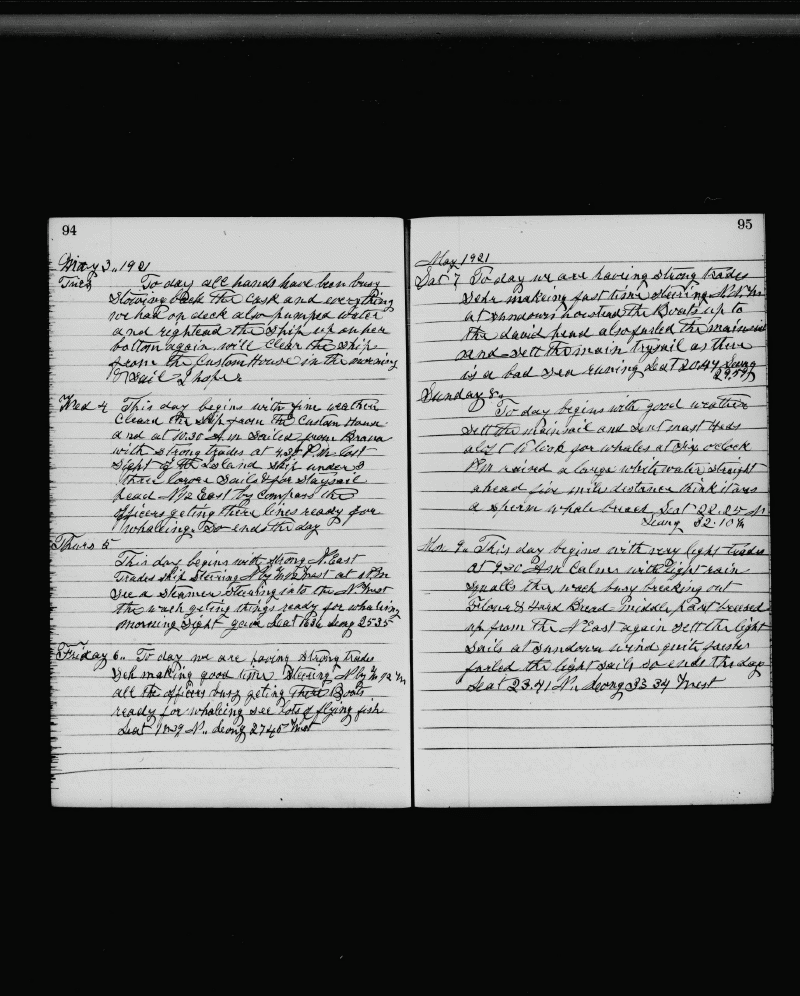 94
May 3,, 1921
Tues To day all hands have been busy
stowing back the cask and everything
we had on deck also pumped water
and the ship up on her
bottom again will clear the ship
from the Custom House in the morning
& sail I hope
Wed 4 This day begins with fine weather
Cleard the ship from the Custom House
and at 10.30 A.m Sailed from Brava
with strong trades at 4.30 P.M. lost
sight of the Island Ship under
three lower Sails & for Staysail
head N 1/2 East by Compass the
officers geting there lines ready for
whaleing. So ends the day
Thurs 5
This day begins with strong N. East
trades Ship Steering N by W 1/2 West at P.M
see a Steamer Stearing into the N West
the wach geting things ready for whaleing
morning Sight gave Leat 16.36 Leong 25.35
Friday 6,, To day we are having strong trades
Sch making good time Steering N by W 1/2 W
all the officers busy geting there Boats
ready for whaleing see lots of flying fish
Leat N,, Leong 27.45 West
95
May 1921
Sat 7 To day we are having strong trades
Schr making fast time steering N.N.W
at sundown hoisted the Boats up to
the david head also furled the mainsail
and sett the main trysail as there
is a bad sea runing Leat 20.47 Leong
29.59
Sunday 8,,
To day begins with good weather
sett the mainsail and sent mast heds
aloft to look for whales at six oclock
P.M raised a large white water straight
ahead five mile distance think it was
a sperm whale breach Leat 22.25 N.
Leong 32.10 W
Mon 9,, This day begins with very light trades
at 9.30 A.M Calm with light rain
squalls the wach busy breaking out
Flour & Hard Bread middle part breesed
up from the N East again sett the light
sails at sundown wind quite fresher
furled the light sails so ends the day
Leat 23.41 N,, Leong 33 34 West